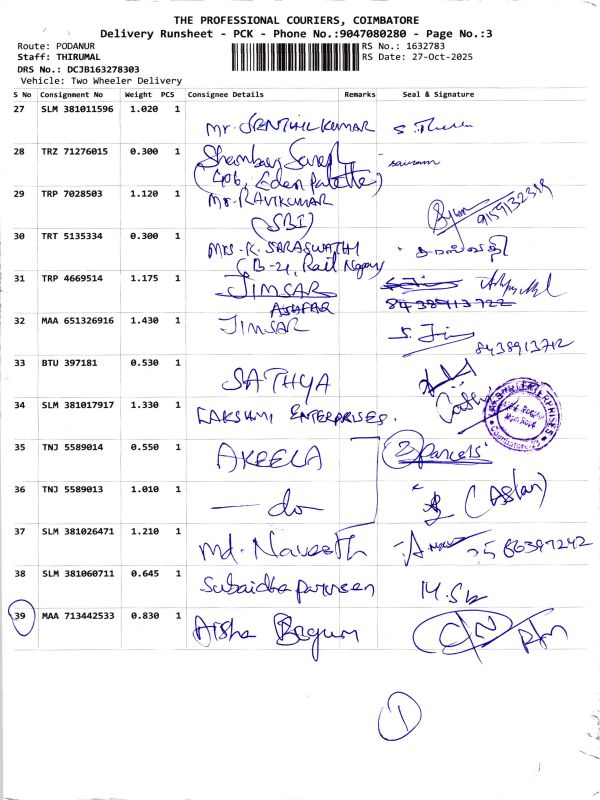 THE PROFESSIONAL COURIERS, COIMBATORE
Delivery Runsheet - PCK - Phone No.:9047080280 - Page No.:3
Route: PODANUR
RS No.: 1632783
Staff: THIRUMAL
RS Date: 27-Oct-2025
DRS No.: DCJB163278303
Vehicle: Two Wheeler Delivery
S No Consignment No Weight PCS Consignee Details Remarks Seal & Signature
27 SLM 381011596 1.020 1
Mr. SENTHILKUMAR
28 TRZ 71276015 0.300 1
(406, Eden Palette)
29 TRP 7028503 1.120 1
Mr. RAVIKUMAR
(SBI)
9159132319
30 TRT 5135334 0.300 1
MRS. R. SARASWATHI சரஸ்வதி
(B-21, Rail Nagar)
31 TRP 4669514 1.175 1
JIMSAR
ASHFAR
8438913722
32 MAA 651326916 1.430 1
JIMSAR
8438913712
33 BTU 397181 0.530 1
SATHYA
34 SLM 381017917 1.330 1
LAKSHMI ENTERPRISES.
35 TNJ 5589014 0.550 1
AKEELA 2 Parcels
36 TNJ 5589013 1.010 1
— do — (Aslan)
37 SLM 381026471 1.210 1
Md. Naveeth
38 SLM 381060711 0.645 1
Subaidha parveen
39 MAA 713442533 0.830 1
Aisha Begum C/N
1